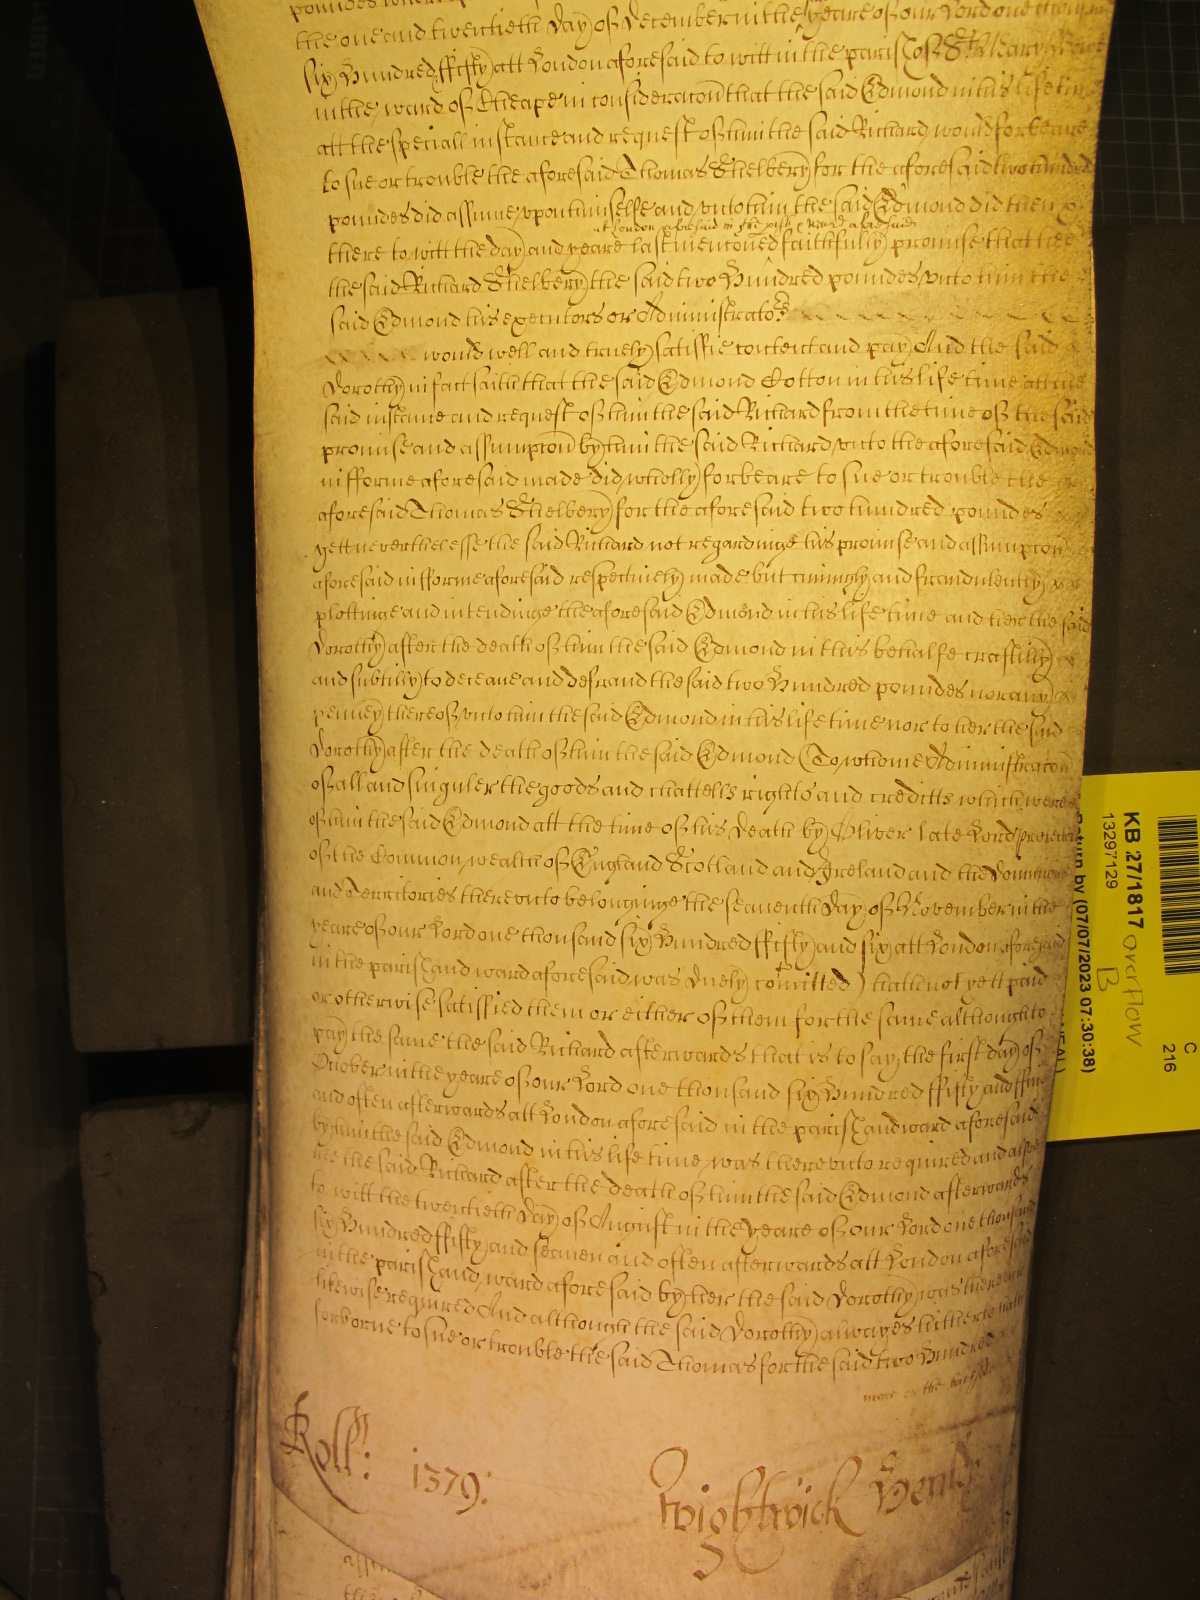 the one and twentieth day of December in the yeare of our Lord one thousand
six Hundred ffifty att London aforesaid to witt in the parish of St. Mary
in the ward of Cheape in consideracon that the said Edmond in his life time
att the speciall instance and request of him the said Richard would forbeare
to sue or trouble the aforesaid Thomas Shelbery for the aforesaid two hundred
poundes did assume vpon himselfe and vnto him the said Edmond did then
at London aforesaid in the parish & ward aforesaid
there to witt the day and yeare last mentioned faithfully promise that hee
the said Richard Shelbery the said two Hundred poundes vnto him the
said Edmond his executors or Administrators
would well and truely satisfie content and pay And the said
Dorothy in fact saith that the said Edmond Cotton in his life time att the
said instance and request of him the said Richard from the time of the said
promise and assumpcon by him the said Richard vnto the aforesaid Edmond
in fforme aforesaid made did wholly forbeare to sue or trouble the
aforesaid Thomas Shelbery for the aforesaid two hundred poundes
yett neverthelesse the said Richard not regardinge his promise and assumpcon
aforesaid in fforme aforesaid respectively made but cuningly and fraudulently
plottinge and intendinge the aforesaid Edmond in his life time and her the said
Dorothy after the death of him the said Edmond in this behalfe craftilly
and subtilly to deceave and defraud the said two Hundred poundes nor any
penney thereof vnto him the said Edmond in his life time nor to her the said
Dorothy after the death of him the said Edmond (To whome Administracon
of all and singuler the goods and chattells rights and creditts which were
of him the said Edmond att the time of his Death by Oliver late Lord protector
of the Common wealth of England Scotland and Ireland and the Dominions
and Territories therevnto belonginge the seaventh Day of November in the
yeare of our Lord one thousand six Hundred ffifty and six att London aforesaid
in the parish and ward aforesaid was duely comitted) hath not yett paid
or otherwise satisfied them or either of them for the same although to
pay the same the said Richard afterwards that is to say the first day of
October in the yeare of our Lord one thousand six Hundred ffifty and ffive
and often afterwards att London aforesaid in the parish and ward aforesaid
by him the said Edmond in his life time was therevnto required and alsoe
hee the said Richard after the death of him the said Edmond afterwards
to witt the twentieth Day of August in the yeare of our Lord one thousand
six Hundred ffifty and seaven and often afterwards att London aforesaid
in the parish and ward aforesaid by her the said Dorothy was therevnto
likewise required And although the said Dorothy alwayes hitherto hath
forborne to sue or trouble the said Thomas for the said two Hundred
more on the backside
Roll: 1379:
Wightwick Henly
KB 27/1817 overflow
13297129
B
Return by (07/07/2023 07:30:38)
C
216